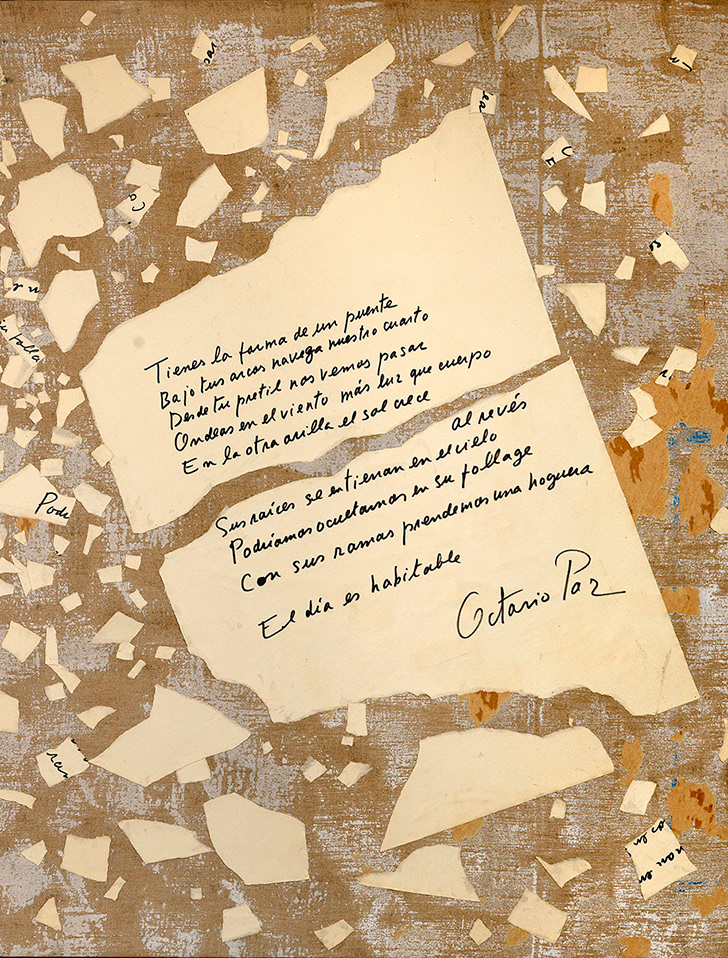 Tienes la forma de un puente
Bajo tus arcos navega nuestro cuarto
Desde tu pretil nos vemos pasar
Ondeas en el viento más luz que cuerpo
En la otra orilla el sol crece
al revés
Sus raíces se entierran en el cielo
Podríamos ocultarnos en su follage
Con sus ramas prendemos una hoguera
El día es habitable
Octavio Paz